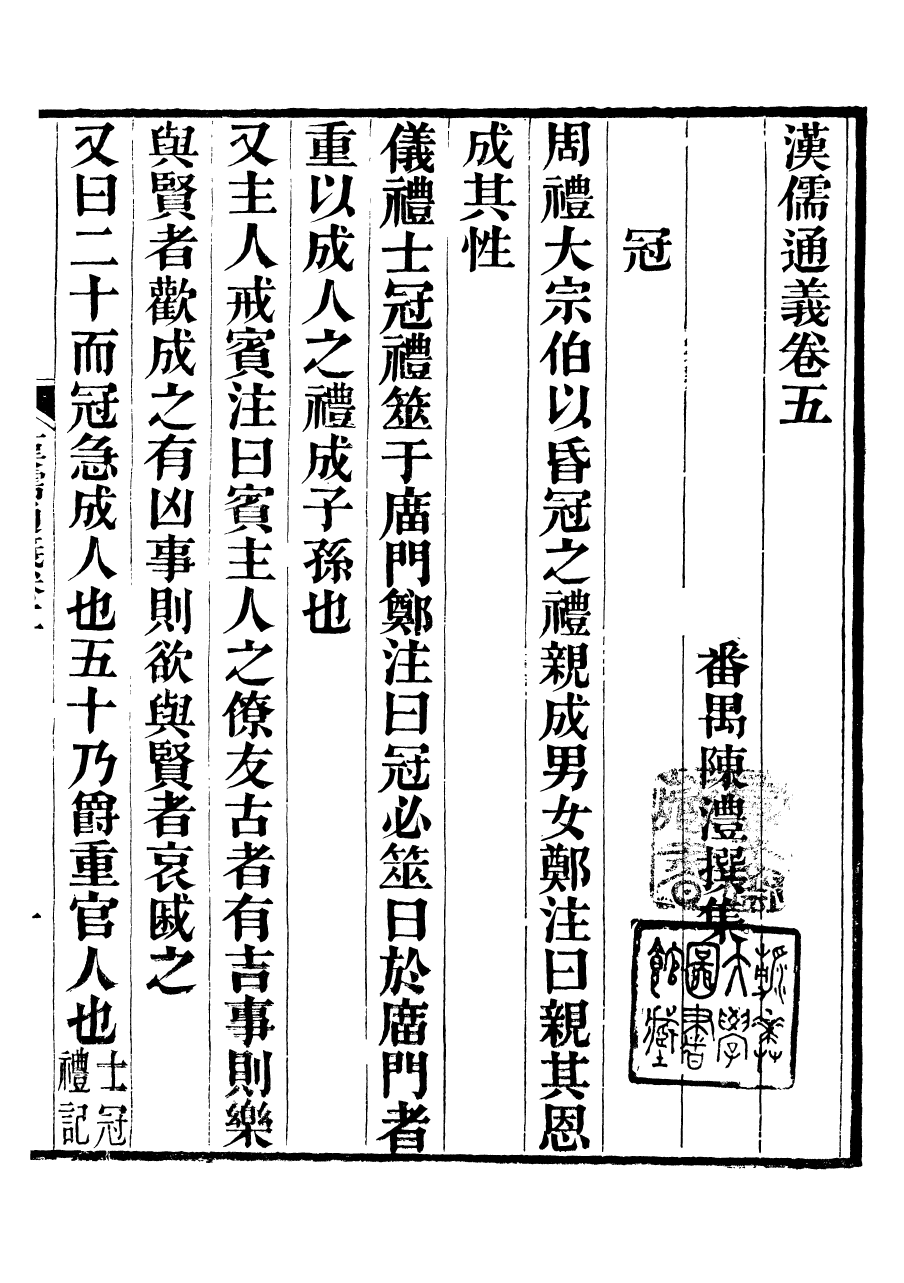 漢儒通義卷五
番禺陳澧撰集
冠
周禮大宗伯以昏冠之禮親成男女鄭注曰親其恩
成其性
儀禮士冠禮筮于庿門鄭注曰冠必筮日於庿門者
重以成人之禮成子孫也
又主人戒賓注曰賓主人之僚友古者有吉事則樂
與賢者歡成之有凶事則欲與賢者哀戚之
又曰二十而冠急成人也五十乃爵重官人也士冠禮記
大學圖書館藏